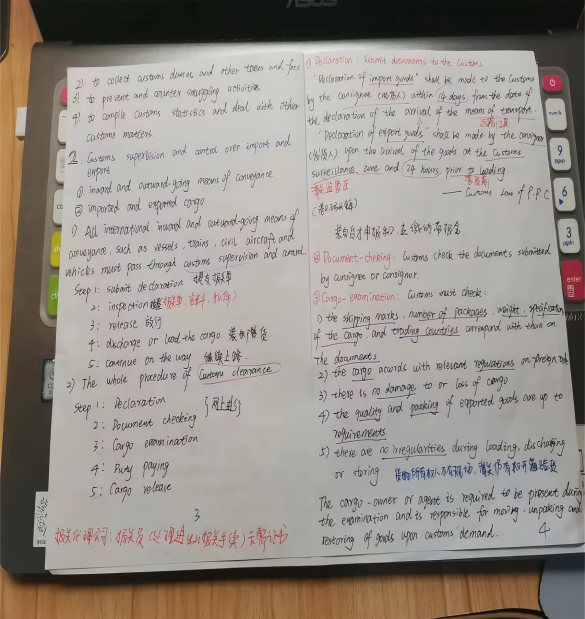 2) to collect customs duties and other taxes and fees
3) to prevent and counter smuggling activities
4) to compile customs statistics and deal with other
customs matters.
2. Customs supervision and control over import and
export
① inward and outward-going means of conveyance
② imported and exported cargo
1). All international inward and outward-going means of
conveyance, such as vessels, trains, civil aircraft and
vehicles must pass through customs supervision and control.
Step 1: submit a declaration 提交报关单
2: inspection
3: release 放行
4: discharge or load the cargo 装卸货
5: continue on the way 继续上路.
2) The whole procedure of Customs clearance
Step 1: Declaration
2: Document checking
3: Cargo examination
4: Duty paying
5: Cargo release
网上进行
3
报关代理公司: 报关员
① Declaration: Submit documents to the Customs
"Declaration of import goods" shall be made to the Customs
by the consignee (收货人) within 14 days, from the date of
the declaration of the arrival of the means of transport.
运输工具
"Declaration of export goods" shall be made by the consignor
(发货人) upon the arrival of the goods at the Customs
surveillance zone and 24 hours prior to loading.
海关监管区
装货前
—— Customs Law of P.R.C
② Document-checking: Customs check the documents submitted
by consignee or consignor.
③ Cargo-examination: Customs must check:
1) the shipping marks, number of packages, weight, specifications
of the cargo, and trading countries correspond with those on
the documents
2) the cargo accords with relevant regulations on foreign
3) there is no damage to or loss of cargo
4) the quality and packing of exported goods are up to
requirements
5) there are no irregularities during loading, discharging
or storing.
The cargo-owner or agent is required to be present during
the examination and is responsible for moving, unpacking and
restoring of goods upon customs demand.
4
ASUS
num lk
9
pgup
6
3
pgdn
enter